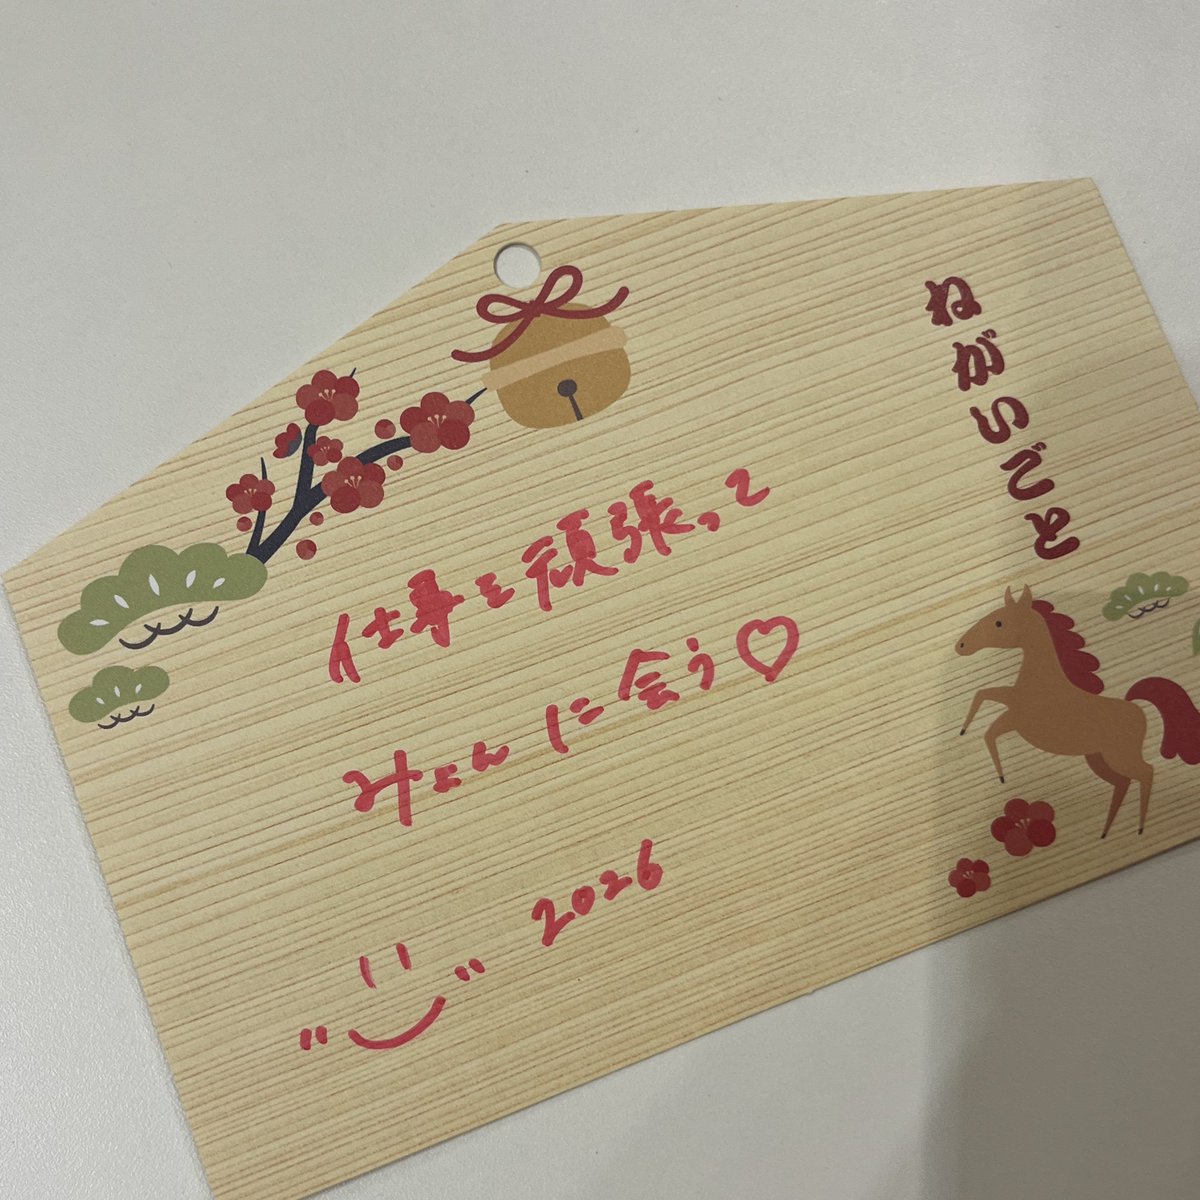 ねがいごと
仕事を頑張って
みょんに会う♡
2026